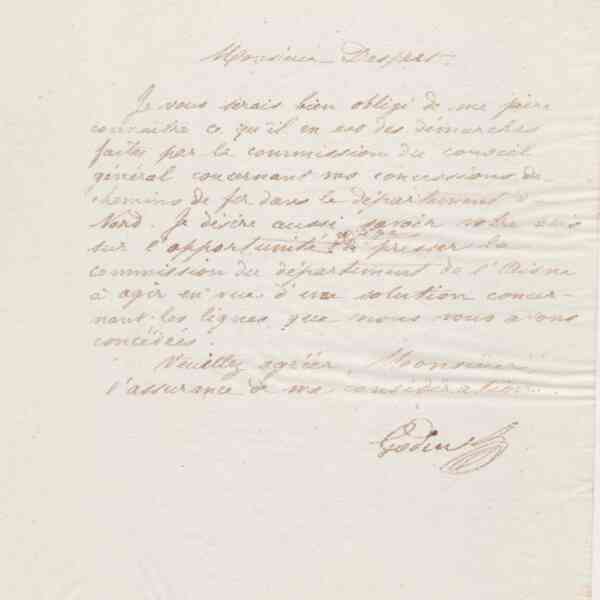 Monsieur Despret.
Je vous serais bien obligé de me faire
connaître ce qu'il en est des démarches
faites par la commission du conseil
général concernant vos concessions de
chemins de fer dans le département du
Nord. Je désire aussi savoir votre avis
sur l'opportunité presser la
commission du département de l'Aisne
à agir en vue d'une solution concer-
nant les lignes que nous vous avons
concédées.
Veuillez agréer, Monsieur
l'assurance de ma considération.
Godin